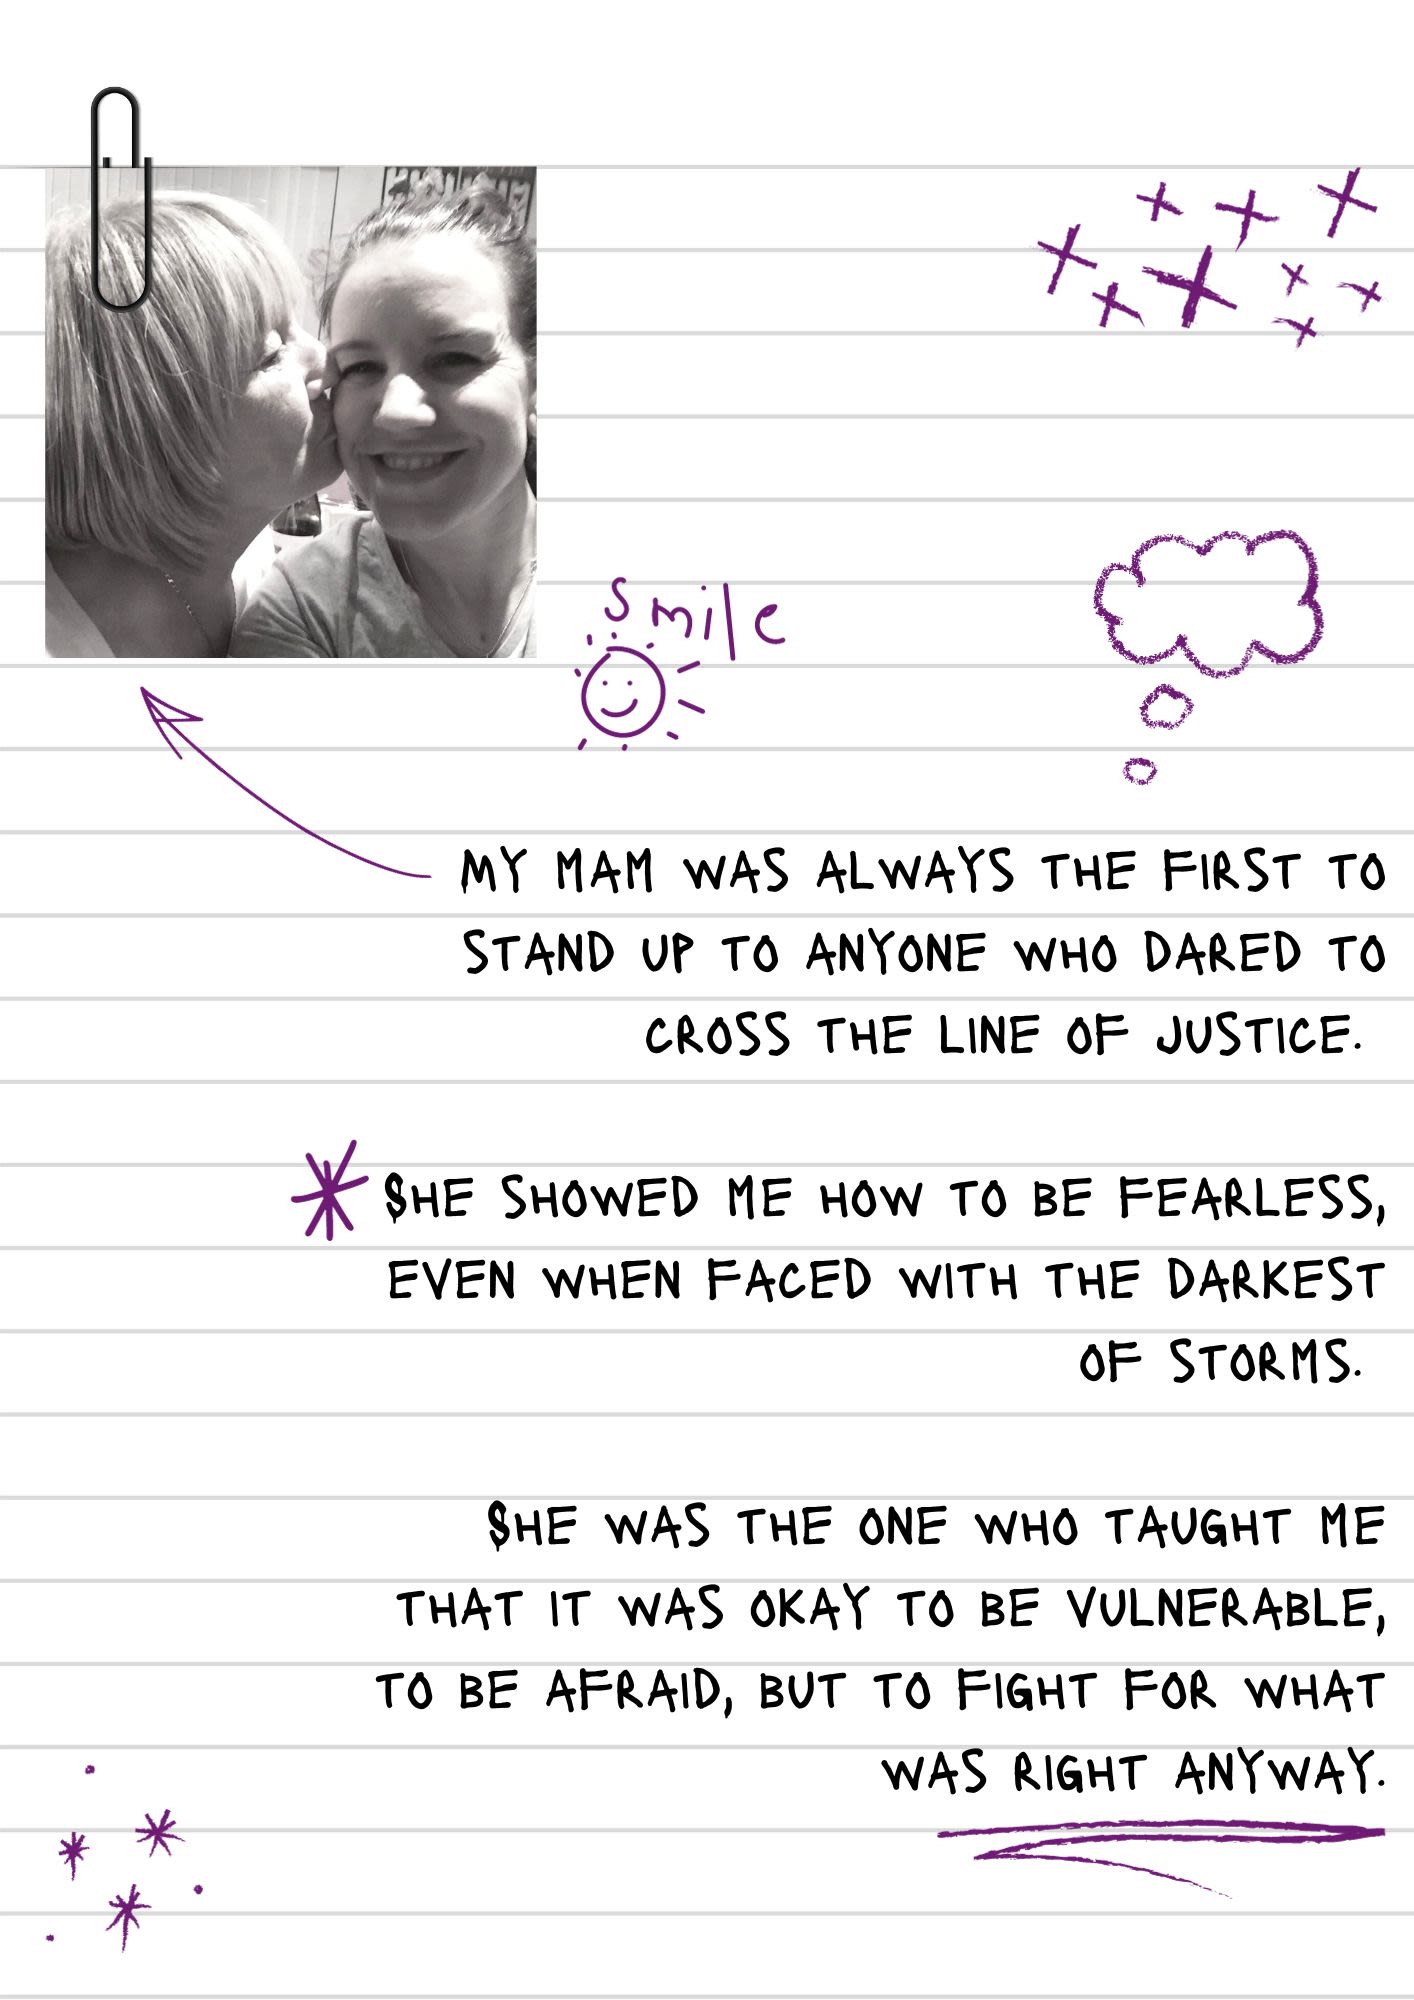 smile
MY MAM WAS ALWAYS THE FIRST TO
STAND UP TO ANYONE WHO DARED TO
CROSS THE LINE OF JUSTICE.
SHE SHOWED ME HOW TO BE FEARLESS,
EVEN WHEN FACED WITH THE DARKEST
OF STORMS.
SHE WAS THE ONE WHO TAUGHT ME
THAT IT WAS OKAY TO BE VULNERABLE,
TO BE AFRAID, BUT TO FIGHT FOR WHAT
WAS RIGHT ANYWAY.